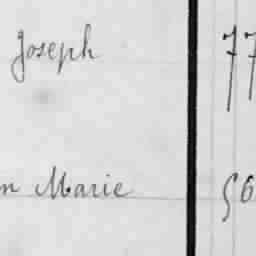 Joseph 77
n Marie 56